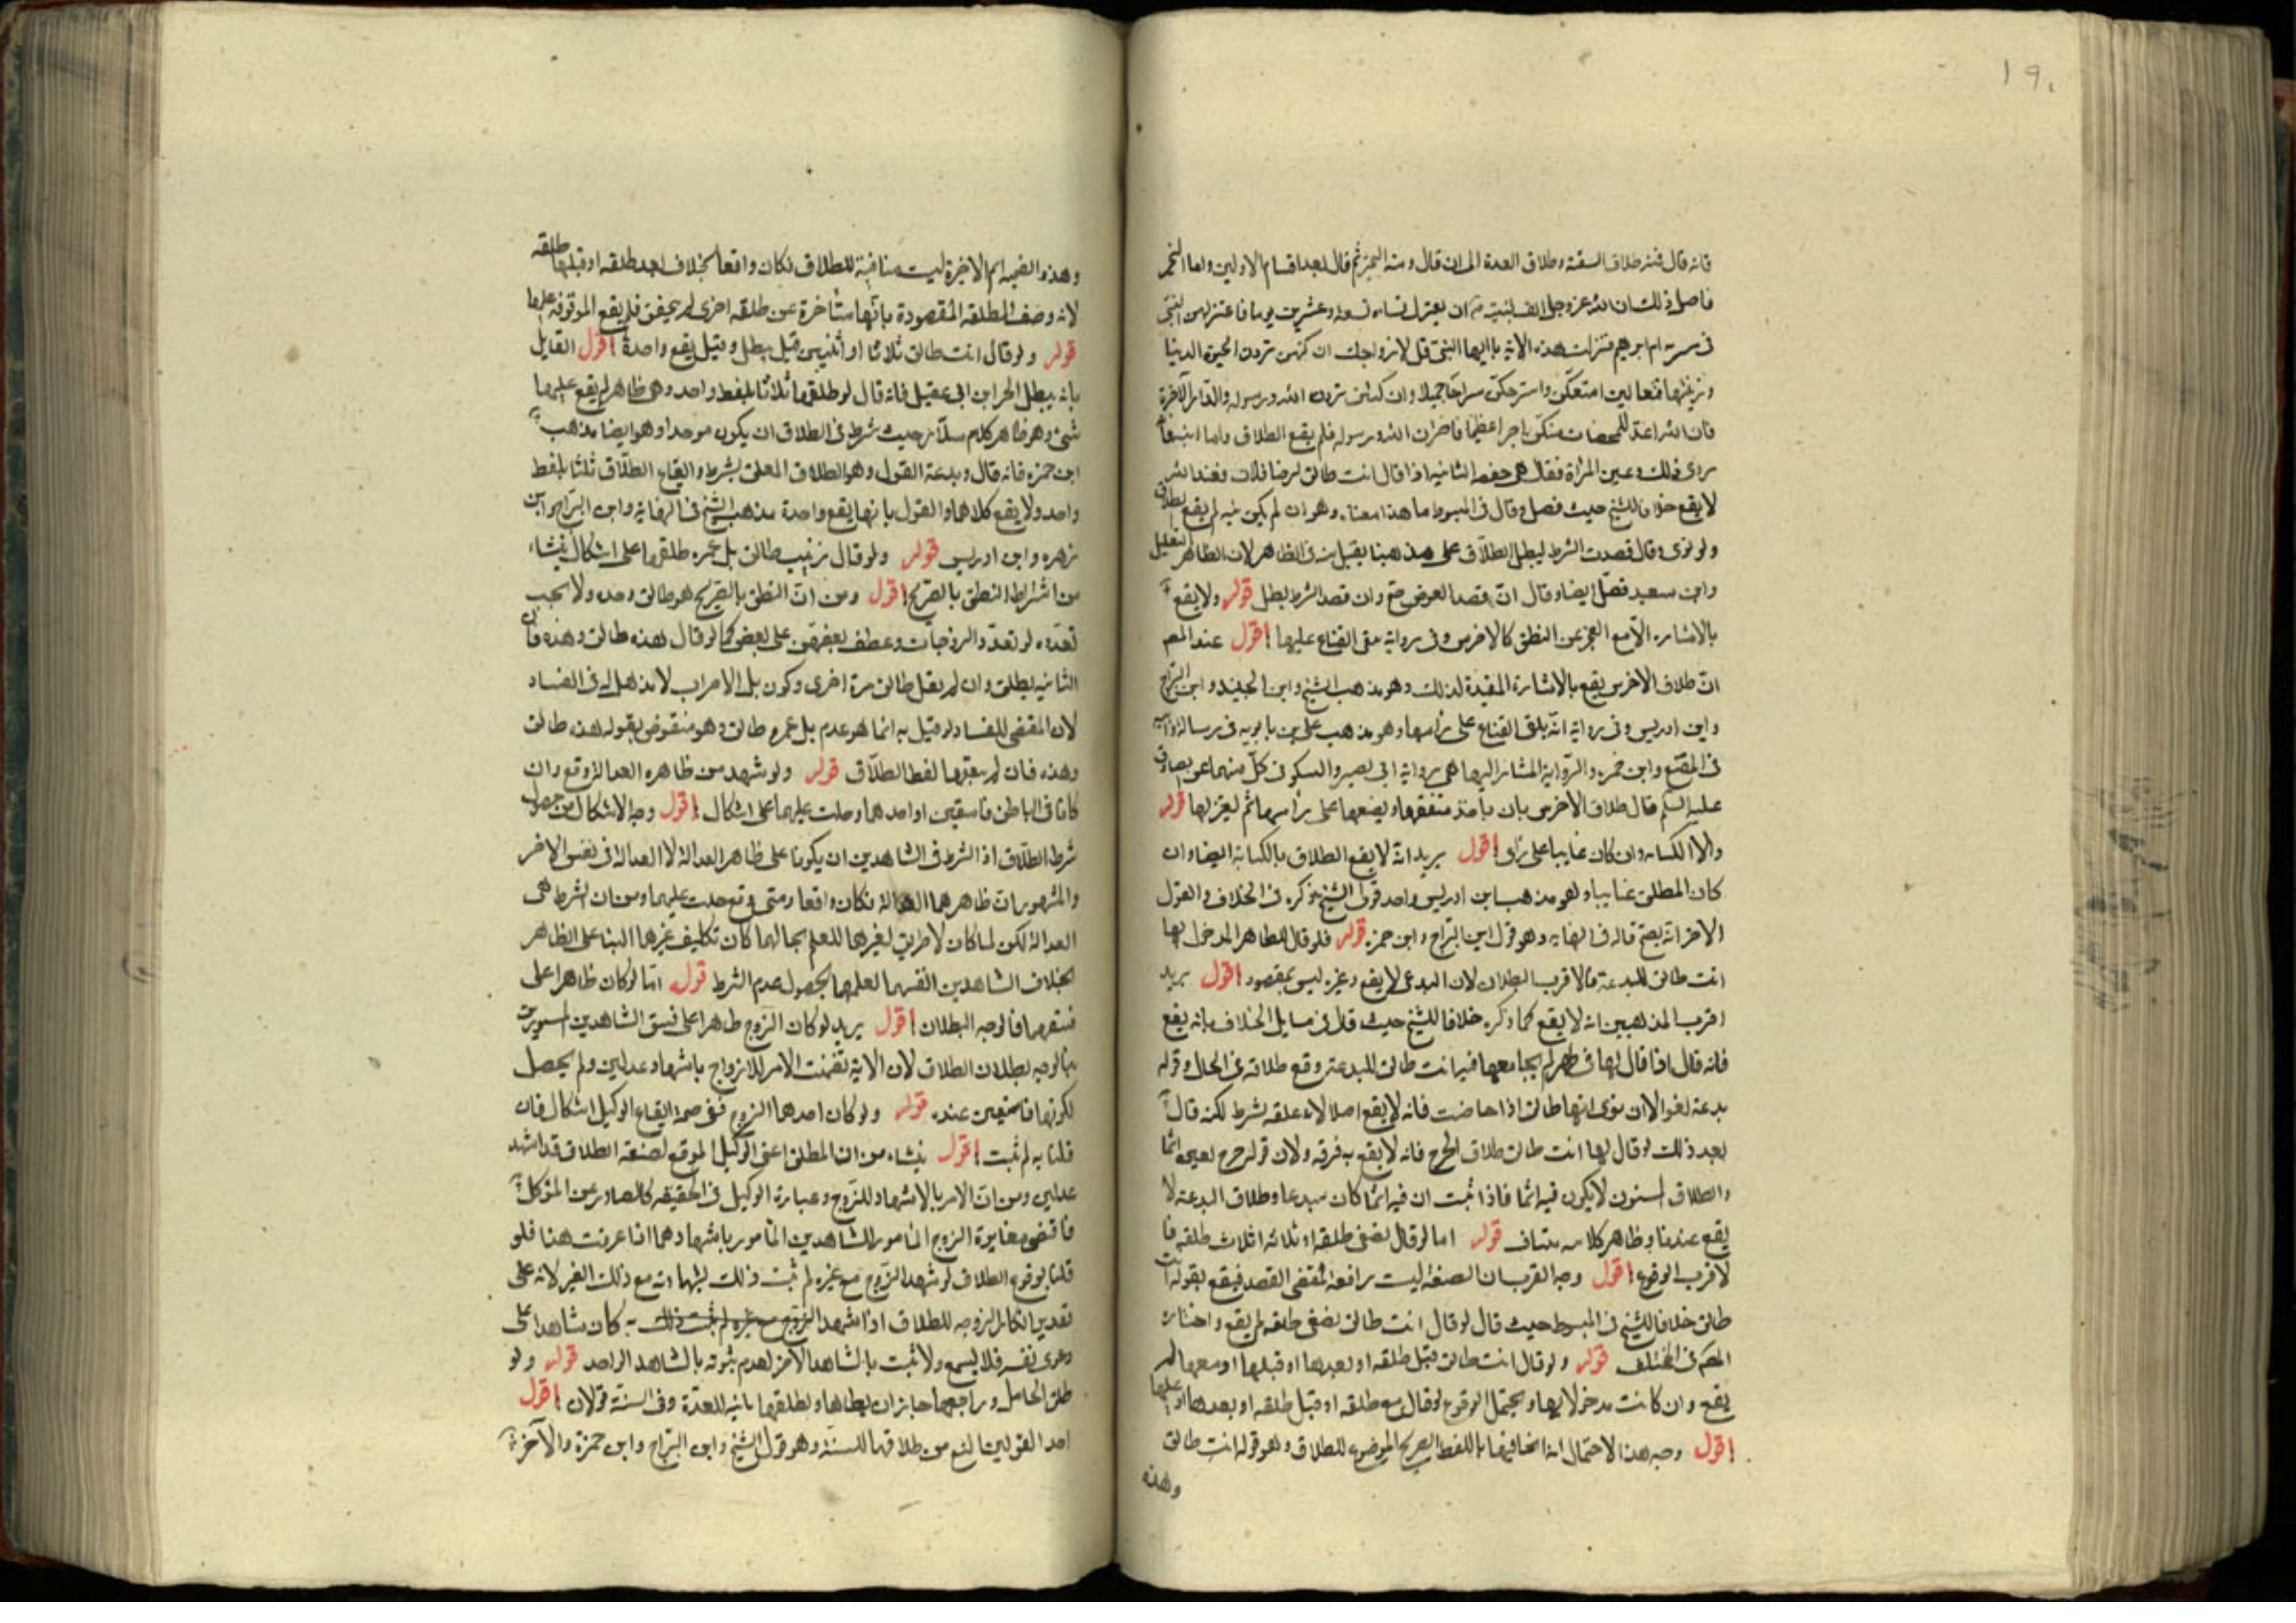 ١٩٠
فانه قال فمنه طلاق السنة وطلاق العدة الى ان قال ومنه التخيير ثم قال بعد اقسام الاولين واما التخير
فاصل ذلك ان الله عز وجل انف لنبيه ان يعتزل نساءه تسعة وعشرين يوما فاعتزلهن النبي
فى مشربه ام ابرهيم فنزلت هذه الاية يا ايها النبى قل لازواجك ان كنتن تردن الحيوة الدنيا
وزينتها فتعالين امتعكن واسرحكن سراحا جميلا وان كنتن تردن الله ورسوله والدار الآخرة
فان الله اعد للمحصنات منكن اجرا عظيما فاخترن الله ورسوله فلم يقع الطلاق
الثانيه اذا قال انت طالق لرضا فلان فعند
لا يقع خلافا للشيخ حيث فصل وقال فى المبسوط ما هذا معناه وهو ان لم يكن نيه لم يقع
ولو نوى وقال قصدت الشرط ليبطل الطلاق على مذهبنا يقبل منه فى الظاهر لان الظاهر التعليل
وابن سعيد فصل ايضا وقال ان قصد الغرض صح وان قصد الشرط بطل قوله ولا يقع
بالاشاره الا مع العجز عن النطق كالاخرس وفى رواية يلقى القناع عليها اقول عند المصم
ان طلاق الاخرس يقع بالاشارة المفيدة لذلك وهو مذهب الشيخ وابن الجنيد وابن البراج
وابن ادريس وفى رواية انه يلقى القناع على راسها وهو مذهب على بن بابويه فى رسالته
فى المقنع وابن حمزه والرواية المشار اليها هى رواية ابى بصير والسكونى كل منهما عن الصادق
عليه السلم قال طلاق الاخرس بان ياخذ مقنعتها ويضعها على راسها ثم يعتزلها قوله
ولا بالكتابه وان كان غايبا على راى اقول يريد انه لا يقع الطلاق بالكتابة ايضا وان
كان المطلق غايبا وهو مذهب ابن ادريس واحد قولى الشيخ ذكره فى الخلاف والقول
الاخر انه يصح قاله فى النهايه وهو قول ابن البراج وابن حمزه قوله فلو قال للطاهر المدخول بها
انت طالق للبدعة فالاقرب البطلان لان البدعى لا يقع وغيره ليس بمقصود اقول يريد
اقرب المذهبين انه لا يقع كما ذكره خلافا للشيخ حيث قال فى مسايل الخلاف بانه يقع
فانه قال اذا قال لها فى طهر لم يجامعها فيه انت طالق للبدعة وقع طلاقه فى الحال وقوله
بدعة لغو الا ان ينوى انها طالق اذا حاضت فانه لا يقع اصلا لانه علقه بشرط لكنه قال
بعد ذلك لو قال لها انت طالق طلاق الحرج فانه لا يقع به فرقه ولان قوله حرج يعنى اثما
والطلاق المسنون لا يكون فيه اثما فاذا ثبت ان فيه اثما كان مبدعا وطلاق البدعة لا
يقع عندنا وظاهر كلامه متناف قوله اما لو قال نصف طلقه او ثلاثه اثلاث طلقه فا
لاقرب الوقوع اقول وجه القرب ان الصيغة ليست رافعة لمقتضى القصد فيقع بقوله انت
طالق خلافا للشيخ فى المبسوط حيث قال لو قال انت طالق نصف طلقه لم يقع واختاره
المصم فى المختلف قوله ولو قال انت طالق قبل طلقه او بعدها او قبلها او معها لم
يقع وان كانت مدخولا بها ويحتمل الوقوع لو قال مع طلقه او قبل طلقه او بعدها او عليها
اقول وجه هذا الاحتمال انه اتى فيها باللفظ الصريح الموضوع للطلاق وهو قوله انت طالق
وهذه
وهذه الضميم الاخيرة ليست منافية للطلاق فكان واقعا بخلاف بعد طلقه او قبلها طلقه
لانه وصف الطلقه المقصودة بانها متاخرة عن طلقه اخرى لم يتحقق فلم يقع الموقوفه عليها
قوله ولو قال انت طالق ثلاثا او اثنين قيل يبطل وقيل يقع واحدة اقول القايل
بانه يبطل الحر ابن ابى عقيل فانه قال لو طلقها ثلاثا بلفظ واحد وهى طاهر لم يقع عليها
شى وهو ظاهر كلام سلار حيث شرط فى الطلاق ان يكون موحدا وهو ايضا مذهب
ابن حمزه فانه قال وبدعة القول وهو الطلاق المعلق بشرط وايقاع الطلاق ثلثا بلفظ
واحد ولا يقع كلاهما والقول بانها يقع واحدة مذهب الشيخ فى النهاية وابن البراج وابن
زهره وابن ادريس قوله ولو قال زينب طالق بل عمره طلقها على اشكال ينشاء
من اشتراط النطق بالصريح اقول ومن ان النطق بالصريح هو طالق وحده ولا يجب
تعدده لو تعدد الزوجات وعطف بعضهن على بعض كما لو قال هذه طالق وهذه فان
الثانيه يطلق وان لم يقل طالق مرة اخرى وكون بل الاضراب لا مدخل له فى الفساد
لان المقتضى للفساد لو قيل به انما هو عدم بل عمره طالق وهو منقوض بقوله هذه طالق
وهذه فان لم يتعقبها لفظ الطلاق قوله ولو شهد من ظاهره العدالة وقع وان
كانا فى الباطن فاسقين او احدهما وحلت عليهما على اشكال اقول وجه الاشكال من حصول
شرط الطلاق اذ الشرط فى الشاهدين ان يكونا على ظاهر العدالة لا العدالة فى نفس الامر
والمشهور ان ظاهرهما العدالة فكان واقعا ومتى وقع حلت عليهما ومن ان الشرط هى
العدالة لكن لما كان لا طريق لغيرهما للعلم بحالهما كان تكليف غيرهما البنا على الظاهر
بخلاف الشاهدين انفسهما لعلمهما بحصول عدم الشرط قوله اما لو كان ظاهرا على
فسقهما فالوجه البطلان اقول يريد لو كان الزوج ظاهرا على فسق الشاهدين المستورين
فالوجه بطلان الطلاق لان الاية تضمنت الامر للازواج باشهاد عدلين ولم يحصل
لكونهما فاسقين عنده قوله ولو كان احدهما الزوج ففى صحة ايقاع الوكيل اشكال فان
قلنا به لم تثبت اقول ينشاء من ان المطلق اعنى الوكيل الموقع لصيغة الطلاق قد اشهد
عدلين ومن ان الامر بالاشهاد للزوج وعبارة الوكيل فى الحقيقه كالصادر عن الموكل
فاقتضى مغايرة الزوج المامور للشاهدين المامور باشهادهما اذا عرفت هذا فلو
قلنا بوقوع الطلاق لو شهد الزوج مع غيره لم تثبت ذلك بشهادته مع ذلك الغير لانه على
تقدير انكار الزوجه للطلاق اذا شهد الزوج مع غيره لم تثبت ذلك به كان شاهدا على
دعوى نفسه فلا يسمع ولا تثبت بالشاهد الاخر لعدم ثبوته بالشاهد الواحد قوله ولو
طلق الحامل وراجعها جاز ان يطاها ويطلقها ثانيه للعدة وفى السنة قولان اقول
احد القولين المنع من طلاقها للسنة وهو قول الشيخ وابن البراج وابن حمزة والآخر